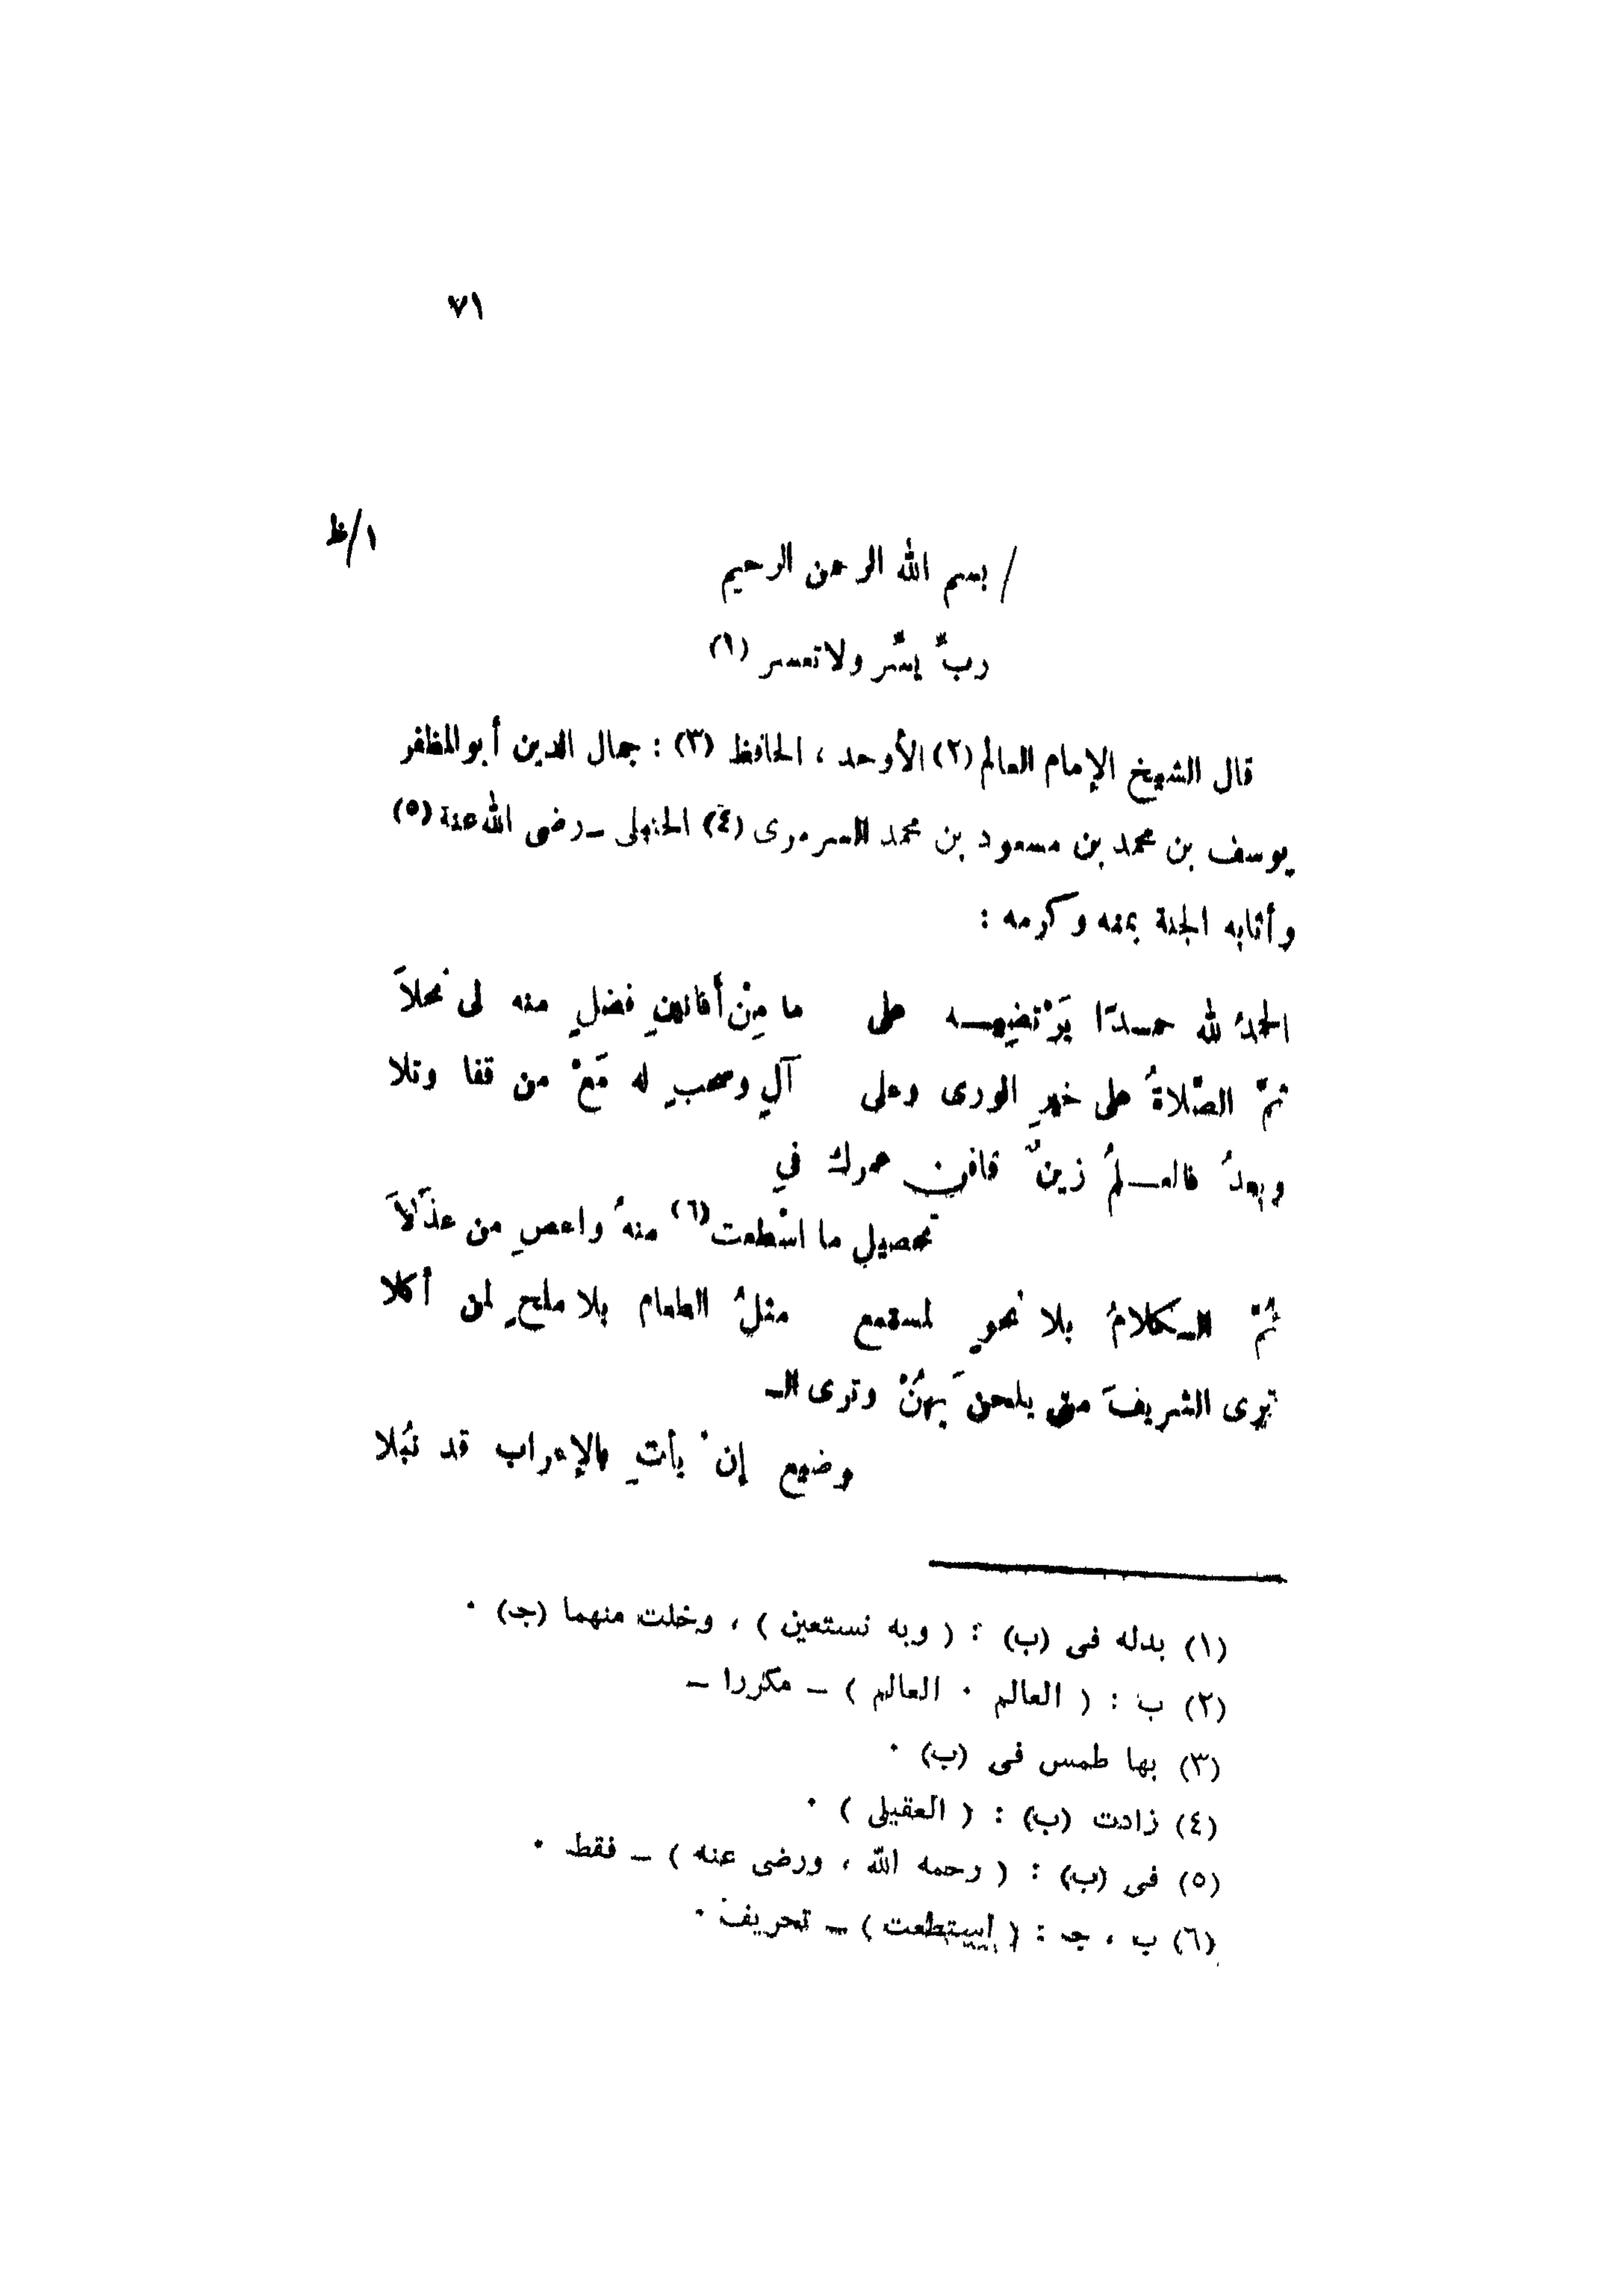 ٧١
١/ظ
/ بسم الله الرحمن الرحيم
ربّ يسّر ولا تعسر (١)
قال الشيخ الإمام العالم (٢) الأوحد ، الحافظ (٣) : جمال الدين أبو المظفر
يوسف بن محمد بن مسعود بن محمد السرمرى (٤) الحنبلى ــ رضى الله عنة (٥)
وأثابه الجنة بمنه وكرمه :
الحمدُ لله حمــدًا يَرْتضيــه على ما مِنْ أفانينِ فضلٍ منه لى نحلاَ
ثمّ الصّلاةُ على خيرِ الورى وعلى آلٍ وصحبٍ له مَعْ من قفا وتلا
وبعدُ فالعــلمُ زينٌ فافنِ عمرك فيِ
تحصيلِ ما اسْطعت (٦) منهُ واعصِ من عذَلاَ
ثُمّ الــكلامُ بلا نحوٍ لمستمع مثلُ الطعام بلا ملحٍ لمن أكلا
ترى الشريفَ متى يلحنَ يهُنْ وترى الــ
وضيع إنْ يأتِ بالإعراب قد نبُلا
(١) بدله فى (ب) : ( وبه نستعين ) ، وخلت منهما (جـ) ٠
(٢) ب : ( العالم ٠ العالم ) ــ مكررا ــ
(٣) بها طمس فى (ب) ٠
(٤) زادت (ب) : ( العقيلى ) ٠
(٥) فى (ب) : ( رحمه الله ، ورضى عنه ) ــ فقط ٠
(٦) ب ، جـ : ( استطعت ) ــ تحريف ٠